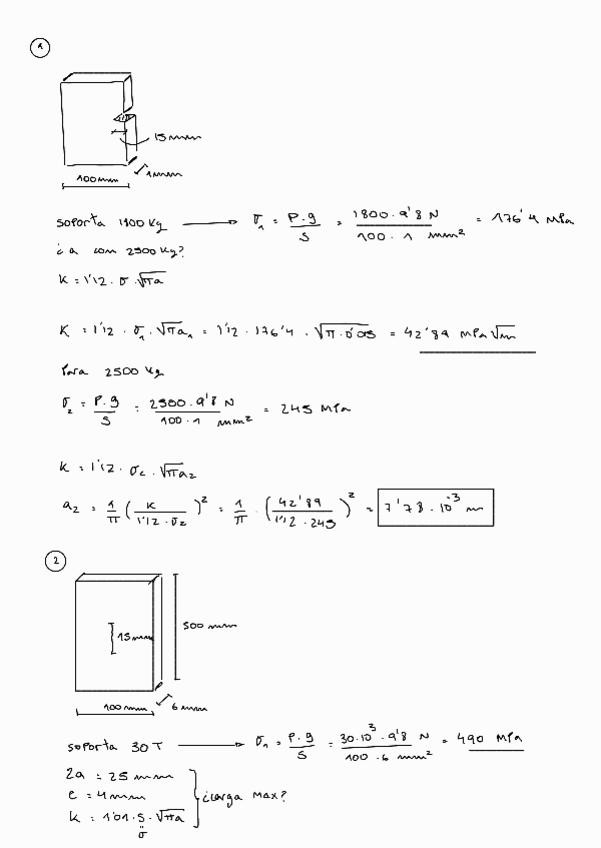 1
15 mm
1 mm
100 mm
soporta 1800 kg → σ₁ = P·g / S = 1800·9'8 N / 100·1 mm² = 176'4 MPa
¿a con 2500 kg?
K = 1'12 · σ · √πa
K = 1'12 · σ₁ · √πa₁ = 1'12 · 176'4 · √π·0'05 = 42'89 MPa√m
Para 2500 kg
σ₂ = P·g / S = 2500·9'8 N / 100·1 mm² = 245 MPa
K = 1'12 · σ₂ · √πa₂
a₂ = 1/π (K / 1'12·σ₂)² = 1/π · (42'89 / 1'12·245)² = 7'78·10⁻³ m
2
15 mm
500 mm
100 mm
6 mm
soporta 30 T → σ₁ = P·g / S = 30·10³·9'8 N / 100·6 mm² = 490 MPa
2a = 25 mm
e = 4 mm
¿carga max?
K = 1'01 · S · √πa
σ